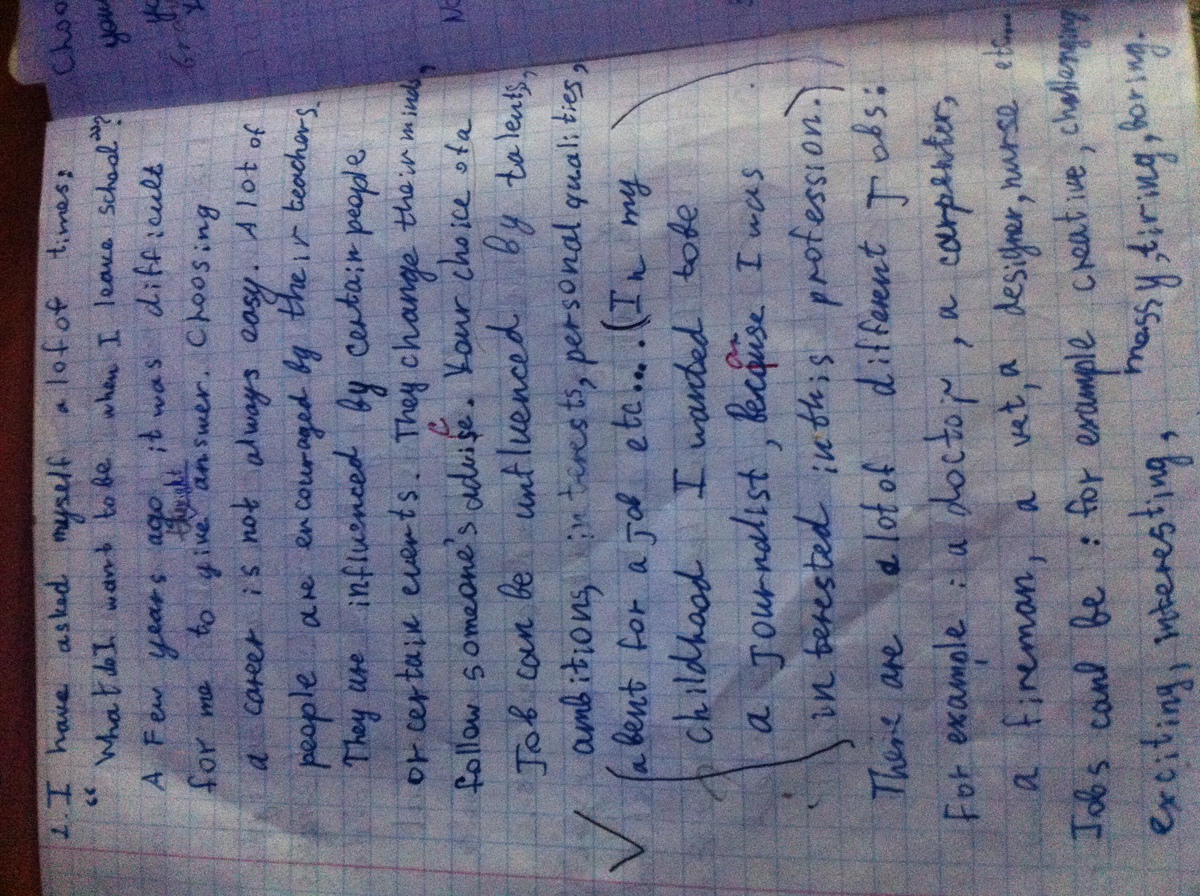 1. I have asked myself a lot of times:
"What do I want to be when I leave school"?
A Few years ago it was difficult
for me to give answer. Choosing
a career is not always easy. A lot of
people are encouraged by their teachers.
They are influenced by certain people
or certain events. They change their minds,
follow someone's advice. Your choice of a
Job can be untluenced by talents,
ambitions, interests, personal qualities,
a bent for a Job etc... (In my
Childhood I wanted to be
a Journalist, Because I was
interested in this profession.)
There are a lot of different Jobs:
For example : a doctor, a carpenter,
a fireman, a vet, a designer, nurse etc...
Jobs canl be : for example creative, challenging
exciting, interesting, messy, tiring, boring.